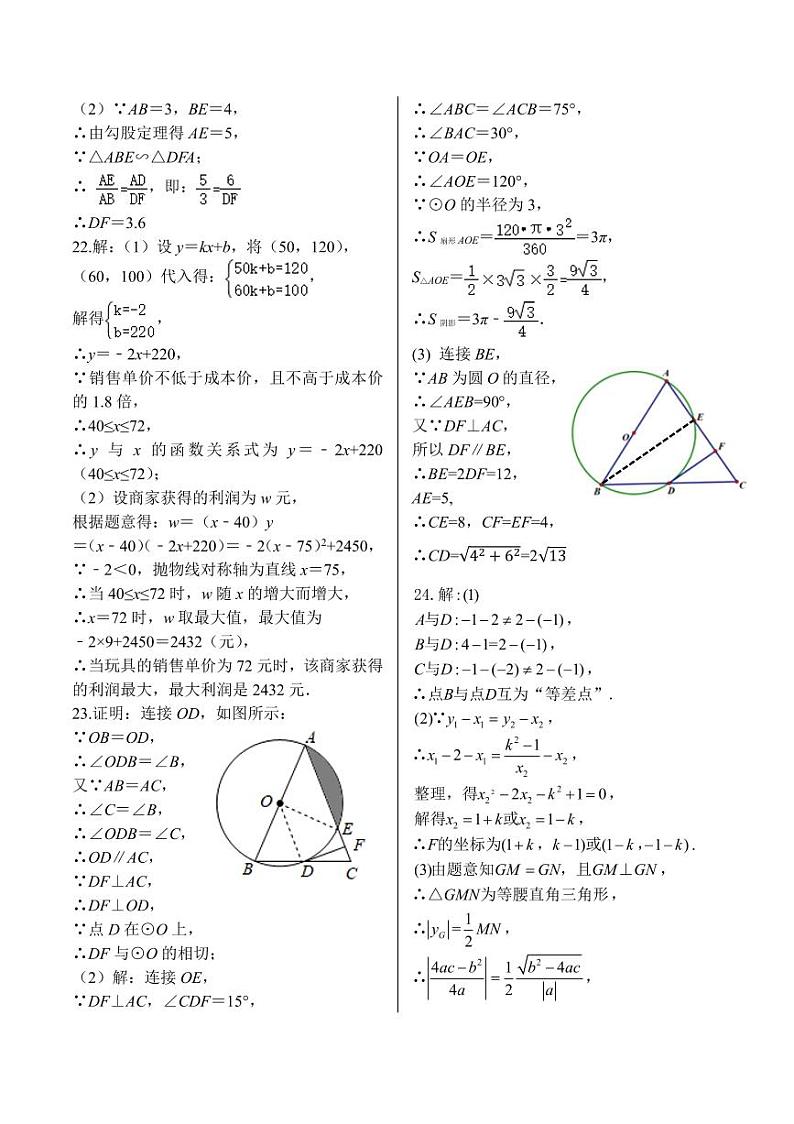 （2）∵AB＝3，BE＝4，
∴由勾股定理得 AE＝5，
∵△ABE∽△DFA；
∴ AE/AB=AD/DF，即：5/3=6/DF
∴DF＝3.6
22.解：（1）设 y＝kx+b，将（50，120），
（60，100）代入得：{50k+b=120
60k+b=100，
解得{k=-2
b=220，
∴y＝﹣2x+220，
∵销售单价不低于成本价，且不高于成本价
的 1.8 倍，
∴40≤x≤72，
∴y 与 x 的函数关系式为 y＝﹣2x+220
（40≤x≤72）；
（2）设商家获得的利润为 w 元，
根据题意得：w＝（x﹣40）y
＝（x﹣40）（﹣2x+220）＝﹣2（x﹣75）²+2450，
∵﹣2＜0，抛物线对称轴为直线 x＝75，
∴当 40≤x≤72 时，w 随 x 的增大而增大，
∴x＝72 时，w 取最大值，最大值为
﹣2×9+2450＝2432（元），
∴当玩具的销售单价为 72 元时，该商家获得
的利润最大，最大利润是 2432 元．
23.证明：连接 OD，如图所示：
∵OB＝OD，
∴∠ODB＝∠B，
又∵AB＝AC，
∴∠C＝∠B，
∴∠ODB＝∠C，
∴OD∥AC，
∵DF⊥AC，
∴DF⊥OD，
∵点 D 在⊙O 上，
∴DF 与⊙O 的相切；
（2）解：连接 OE，
∵DF⊥AC，∠CDF＝15°，
A
O
E
F
B
D
C
∴∠ABC＝∠ACB＝75°，
∴∠BAC＝30°，
∵OA＝OE，
∴∠AOE＝120°，
∵⊙O 的半径为 3，
∴S 扇形 AOE＝120•π•3²/360＝3π，
S△AOE＝1/2×3√3×3/2=9√3/4，
∴S 阴影＝3π﹣9√3/4．
(3) 连接 BE，
∵AB 为圆 O 的直径，
∴∠AEB=90°，
又∵DF⊥AC，
所以 DF∥BE，
∴BE=2DF=12，
AE=5,
∴CE=8，CF=EF=4，
∴CD=√(4²+6²)=2√13
A
E
O
F
B
D
C
24. 解:(1)
A与D:−1−2≠2−(−1)，
B与D:4−1=2−(−1)，
C与D:−1−(−2)≠2−(−1)，
∴点B与点D互为“等差点”.
(2)∵y₁−x₁=y₂−x₂，
∴x₁−2−x₁=(k²−1)/x₂−x₂，
整理，得x₂²−2x₂−k²+1=0，
解得x₂=1+k或x₂=1−k，
∴F的坐标为(1+k，k−1)或(1−k,−1−k).
(3)由题意知GM=GN，且GM⊥GN，
∴△GMN为等腰直角三角形，
∴|y_G|=1/2 MN，
∴|(4ac−b²)/4a|=1/2 √(b²−4ac)/|a|，